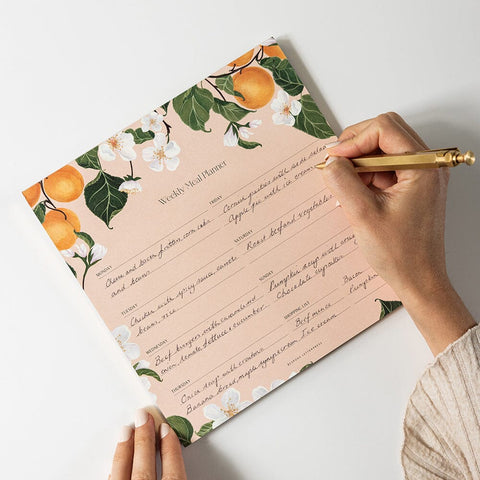 Weekly Meal Planner
MONDAY
Cheese and bacon fritters corn cobs
and beans
TUESDAY
Chicken with spicy sauce, carrots
beans, rice
WEDNESDAY
Beef burgers with caramelised
onion, tomato, lettuce & cucumber
THURSDAY
Onion soup with croutons
Banana bread, maple syrup ice cream
FRIDAY
Corner pasties with side salad
Apple pie with ice cream
SATURDAY
Roast beef and vegetables
SUNDAY
Pumpkin soup with
Chocolate cupcakes
SHOPPING LIST
Beef mince Bacon
Ice cream Pumpkin
BESPOKE LETTERPRESS